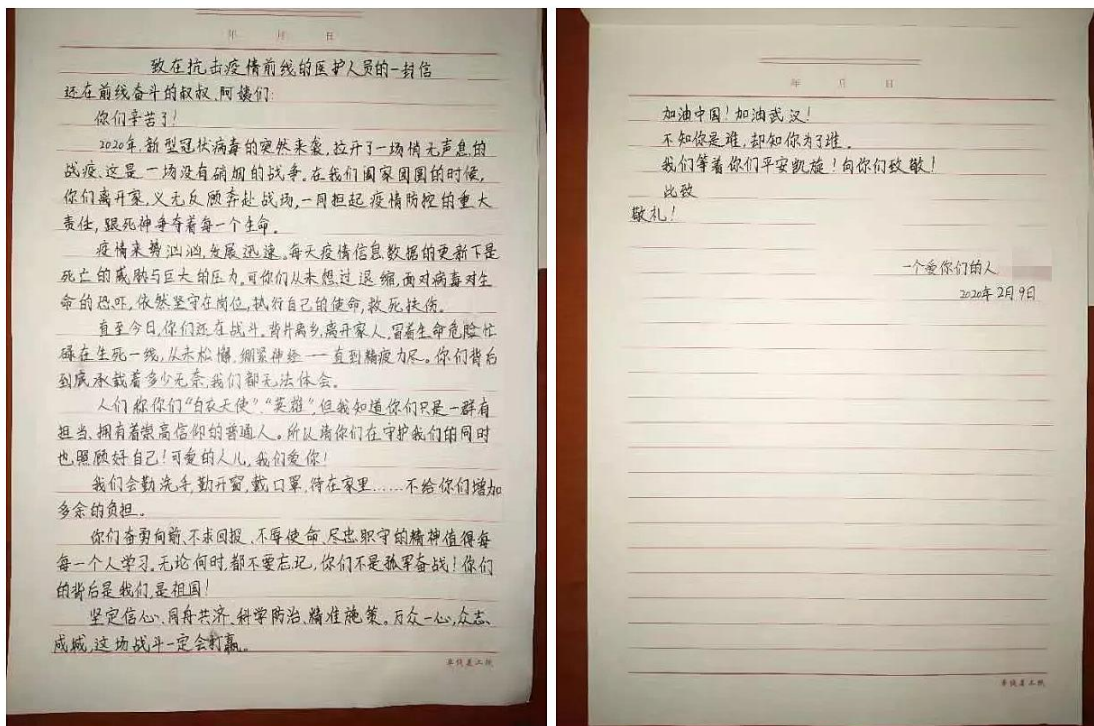 年 月 日
致在抗击疫情前线的医护人员的一封信
还在前线奋斗的叔叔、阿姨们:
你们辛苦了!
2020年,新型冠状病毒的突然来袭,拉开了一场悄无声息的
战疫、这是一场没有硝烟的战争。在我们阖家团圆的时候,
你们离开家,义无反顾奔赴战场,一同担起疫情防控的重大
责任,跟死神争夺着每一个生命。
疫情来势汹汹,发展迅速。每天疫情信息数据的更新下是
死亡的威胁与巨大的压力,可你们从未想过退缩,面对病毒对生
命的恐吓,依然坚守在岗位,执行自己的使命,救死扶伤。
直至今日,你们还在战斗。背井离乡,离开家人,冒着生命危险忙
碌在生死一线,从未松懈,绷紧神经——直到精疲力尽。你们背后
到底承载着多少无奈,我们都无法体会。
人们称你们“白衣天使”、“英雄”,但我知道你们只是一群有
担当、拥有着崇高信仰的普通人。所以请你们在守护我们的同时
也照顾好自己!可爱的人儿,我们爱你!
我们会勤洗手,勤开窗,戴口罩,待在家里……不给你们增加
多余的负担。
你们奋勇向前、不求回报、不辱使命、尽忠职守的精神值得每
每一个人学习。无论何时,都不要忘记,你们不是孤军奋战!你们
的背后是我们,是祖国!
坚定信心、同舟共济、科学防治、精准施策。万众一心,众志
成城,这场战斗一定会打赢。
年 月 日
加油中国!加油武汉!
不知你是谁,却知你为了谁。
我们等着你们平安凯旋!向你们致敬!
此致
敬礼!
一个爱你们的人
2020年2月9日